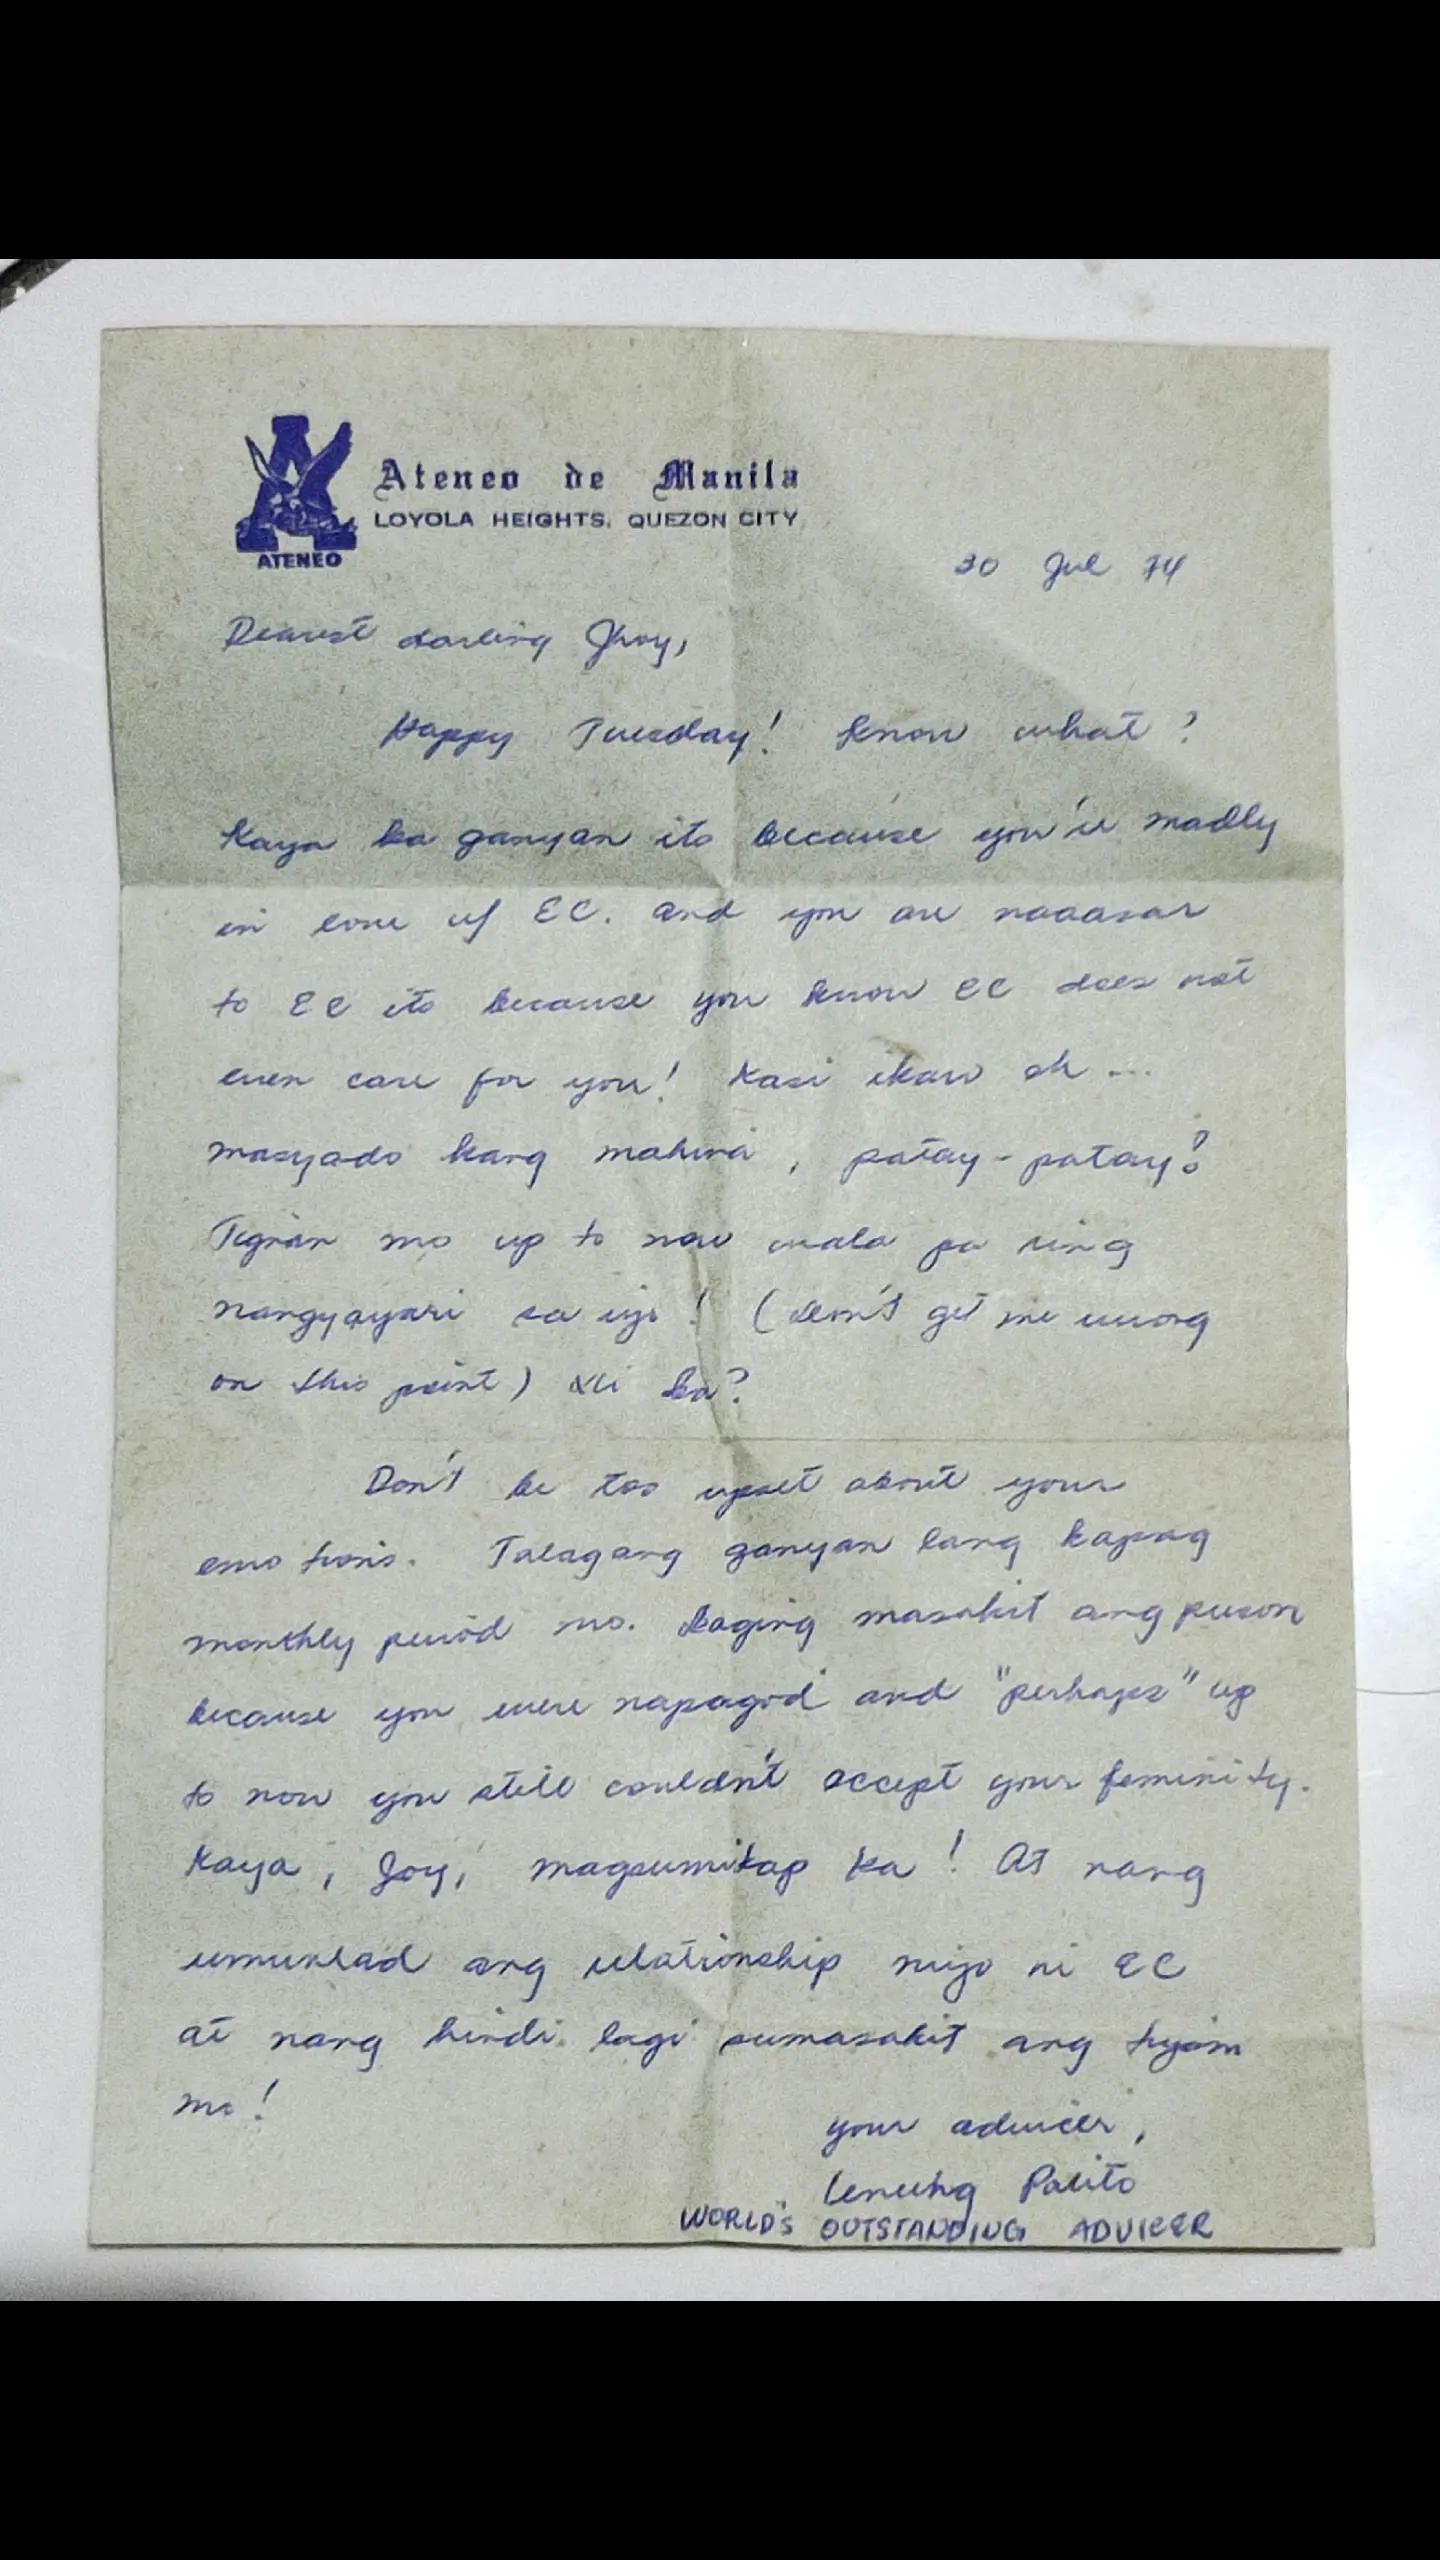 ATENEO
Ateneo de Manila
LOYOLA HEIGHTS, QUEZON CITY
30 Jul 74
Dearest darling Jhoy,
Happy Tuesday! Know what?
Kaya ka ganyan its because you're madly
in love w/ EC. And you are naaasar
to EC its because you know EC does not
even care for you! Kasi ikaw eh ...
masyado kang mahina, patay-patay!
Tignan mo up to now wala pa ring
nangyayari sa iyo! (Don't get me wrong
on this point) Di ba?
Don't be too upset about your
emotions. Talagang ganyan lang kapag
monthly period mo. Laging masakit ang puson
because you were napagod and "perhaps" up
to now you still couldn't accept your feminity.
Kaya, Joy, magsumikap ka! At nang
umunlad ang relationship niyo ni EC
at nang hindi lagi sumasakit ang tiyan
mo!
your advicer,
Palito
WORLD'S OUTSTANDING ADVICER